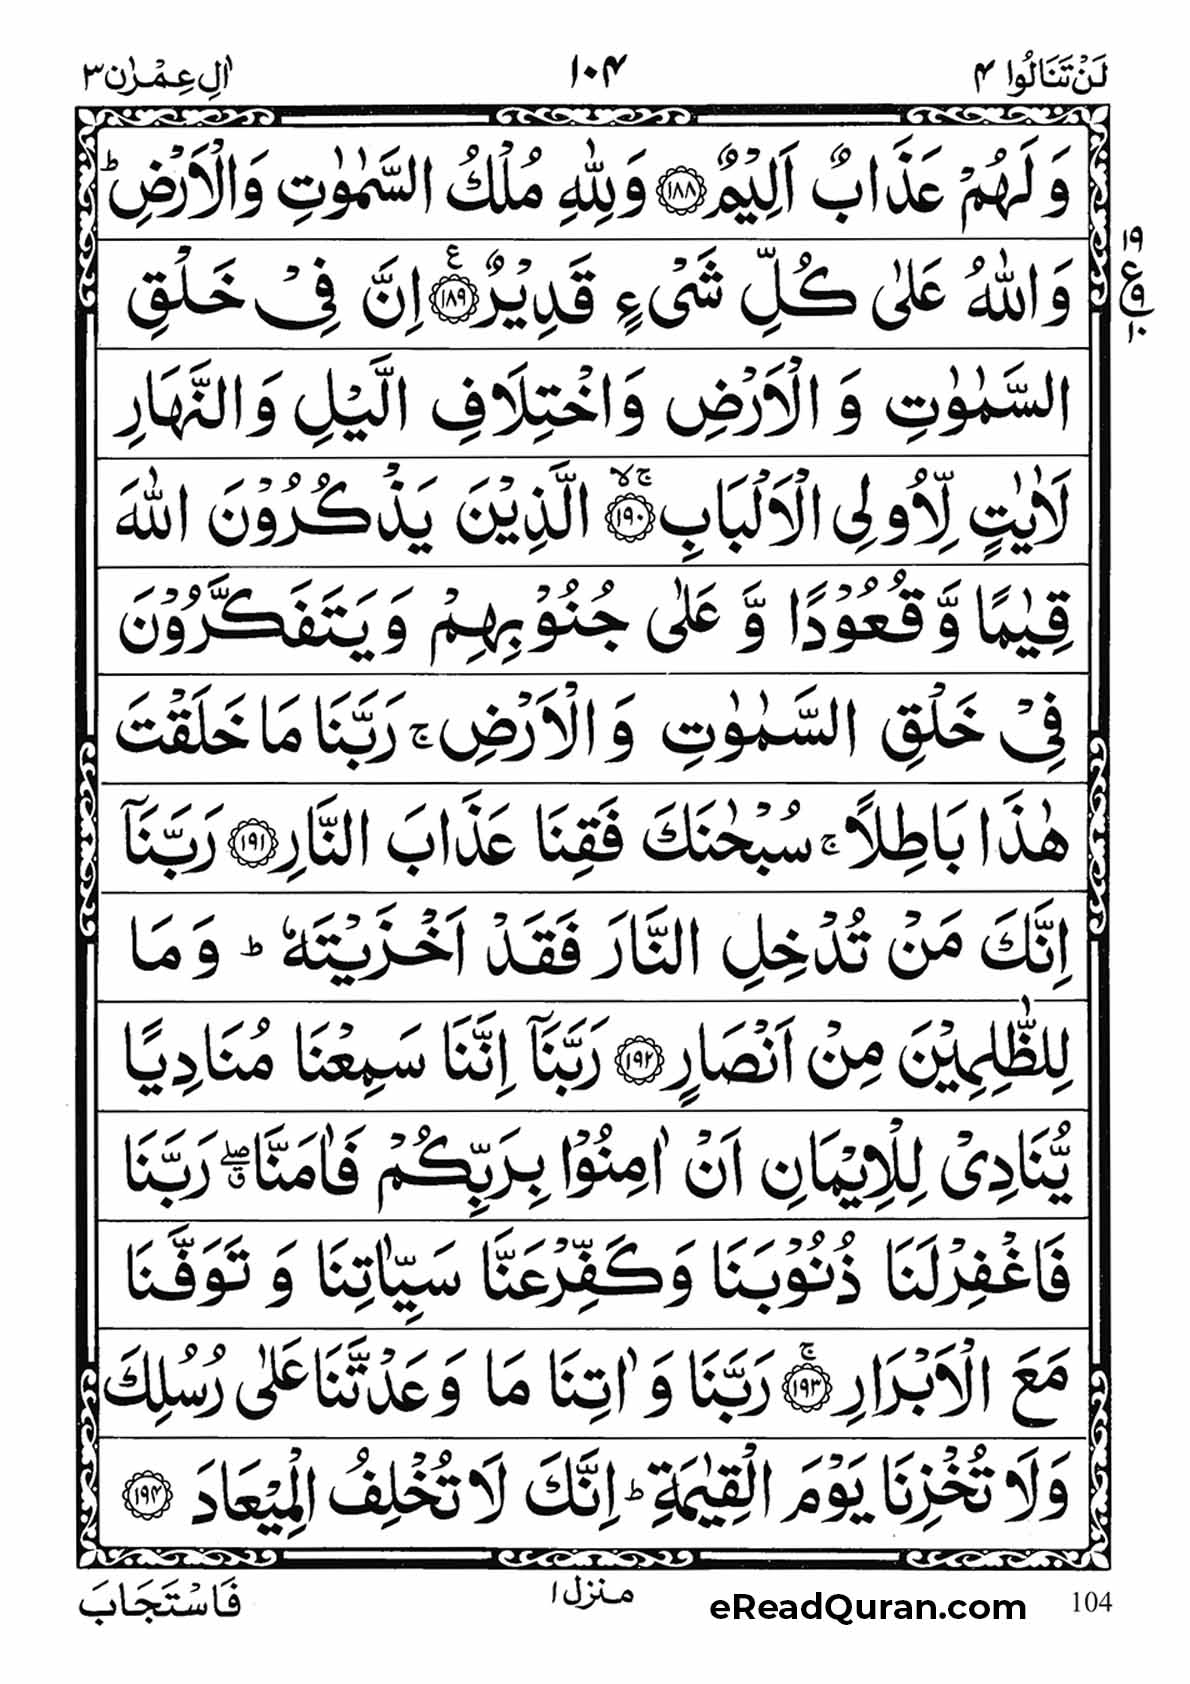 لَنْ تَنَالُوا ۴ ۱۰۴ اٰلِ عِمْرٰن ۳
وَ لَهُمْ عَذَابٌ اَلِیْمٌ ﴿۱۸۸﴾ وَ لِلّٰهِ مُلْكُ السَّمٰوٰتِ وَ الْاَرْضِ ؕ
وَ اللّٰهُ عَلٰی كُلِّ شَیْءٍ قَدِیْرٌ ﴿۱۸۹﴾ ع اِنَّ فِیْ خَلْقِ
۱۹
ع ۹
۱۰
السَّمٰوٰتِ وَ الْاَرْضِ وَ اخْتِلَافِ الَّیْلِ وَ النَّهَارِ
لَاٰیٰتٍ لِّاُولِی الْاَلْبَابِ ﴿۱۹۰﴾ ۚۙ الَّذِیْنَ یَذْكُرُوْنَ اللّٰهَ
قِیٰمًا وَّ قُعُوْدًا وَّ عَلٰی جُنُوْبِهِمْ وَ یَتَفَكَّرُوْنَ
فِیْ خَلْقِ السَّمٰوٰتِ وَ الْاَرْضِ ۚ رَبَّنَا مَا خَلَقْتَ
هٰذَا بَاطِلًا ۚ سُبْحٰنَكَ فَقِنَا عَذَابَ النَّارِ ﴿۱۹۱﴾ رَبَّنَاۤ
اِنَّكَ مَنْ تُدْخِلِ النَّارَ فَقَدْ اَخْزَیْتَهٗ ؕ وَ مَا
لِلظّٰلِمِیْنَ مِنْ اَنْصَارٍ ﴿۱۹۲﴾ رَبَّنَاۤ اِنَّنَا سَمِعْنَا مُنَادِیًا
یُّنَادِیْ لِلْاِیْمَانِ اَنْ اٰمِنُوْا بِرَبِّكُمْ فَاٰمَنَّا ۖۗ رَبَّنَا
فَاغْفِرْ لَنَا ذُنُوْبَنَا وَ كَفِّرْ عَنَّا سَیِّاٰتِنَا وَ تَوَفَّنَا
مَعَ الْاَبْرَارِ ﴿۱۹۳﴾ ۚ رَبَّنَا وَ اٰتِنَا مَا وَعَدْتَّنَا عَلٰی رُسُلِكَ
وَ لَا تُخْزِنَا یَوْمَ الْقِیٰمَةِ ؕ اِنَّكَ لَا تُخْلِفُ الْمِیْعَادَ ﴿۱۹۴﴾
104 eReadQuran.com منزل ۱ فَاسْتَجَابَ